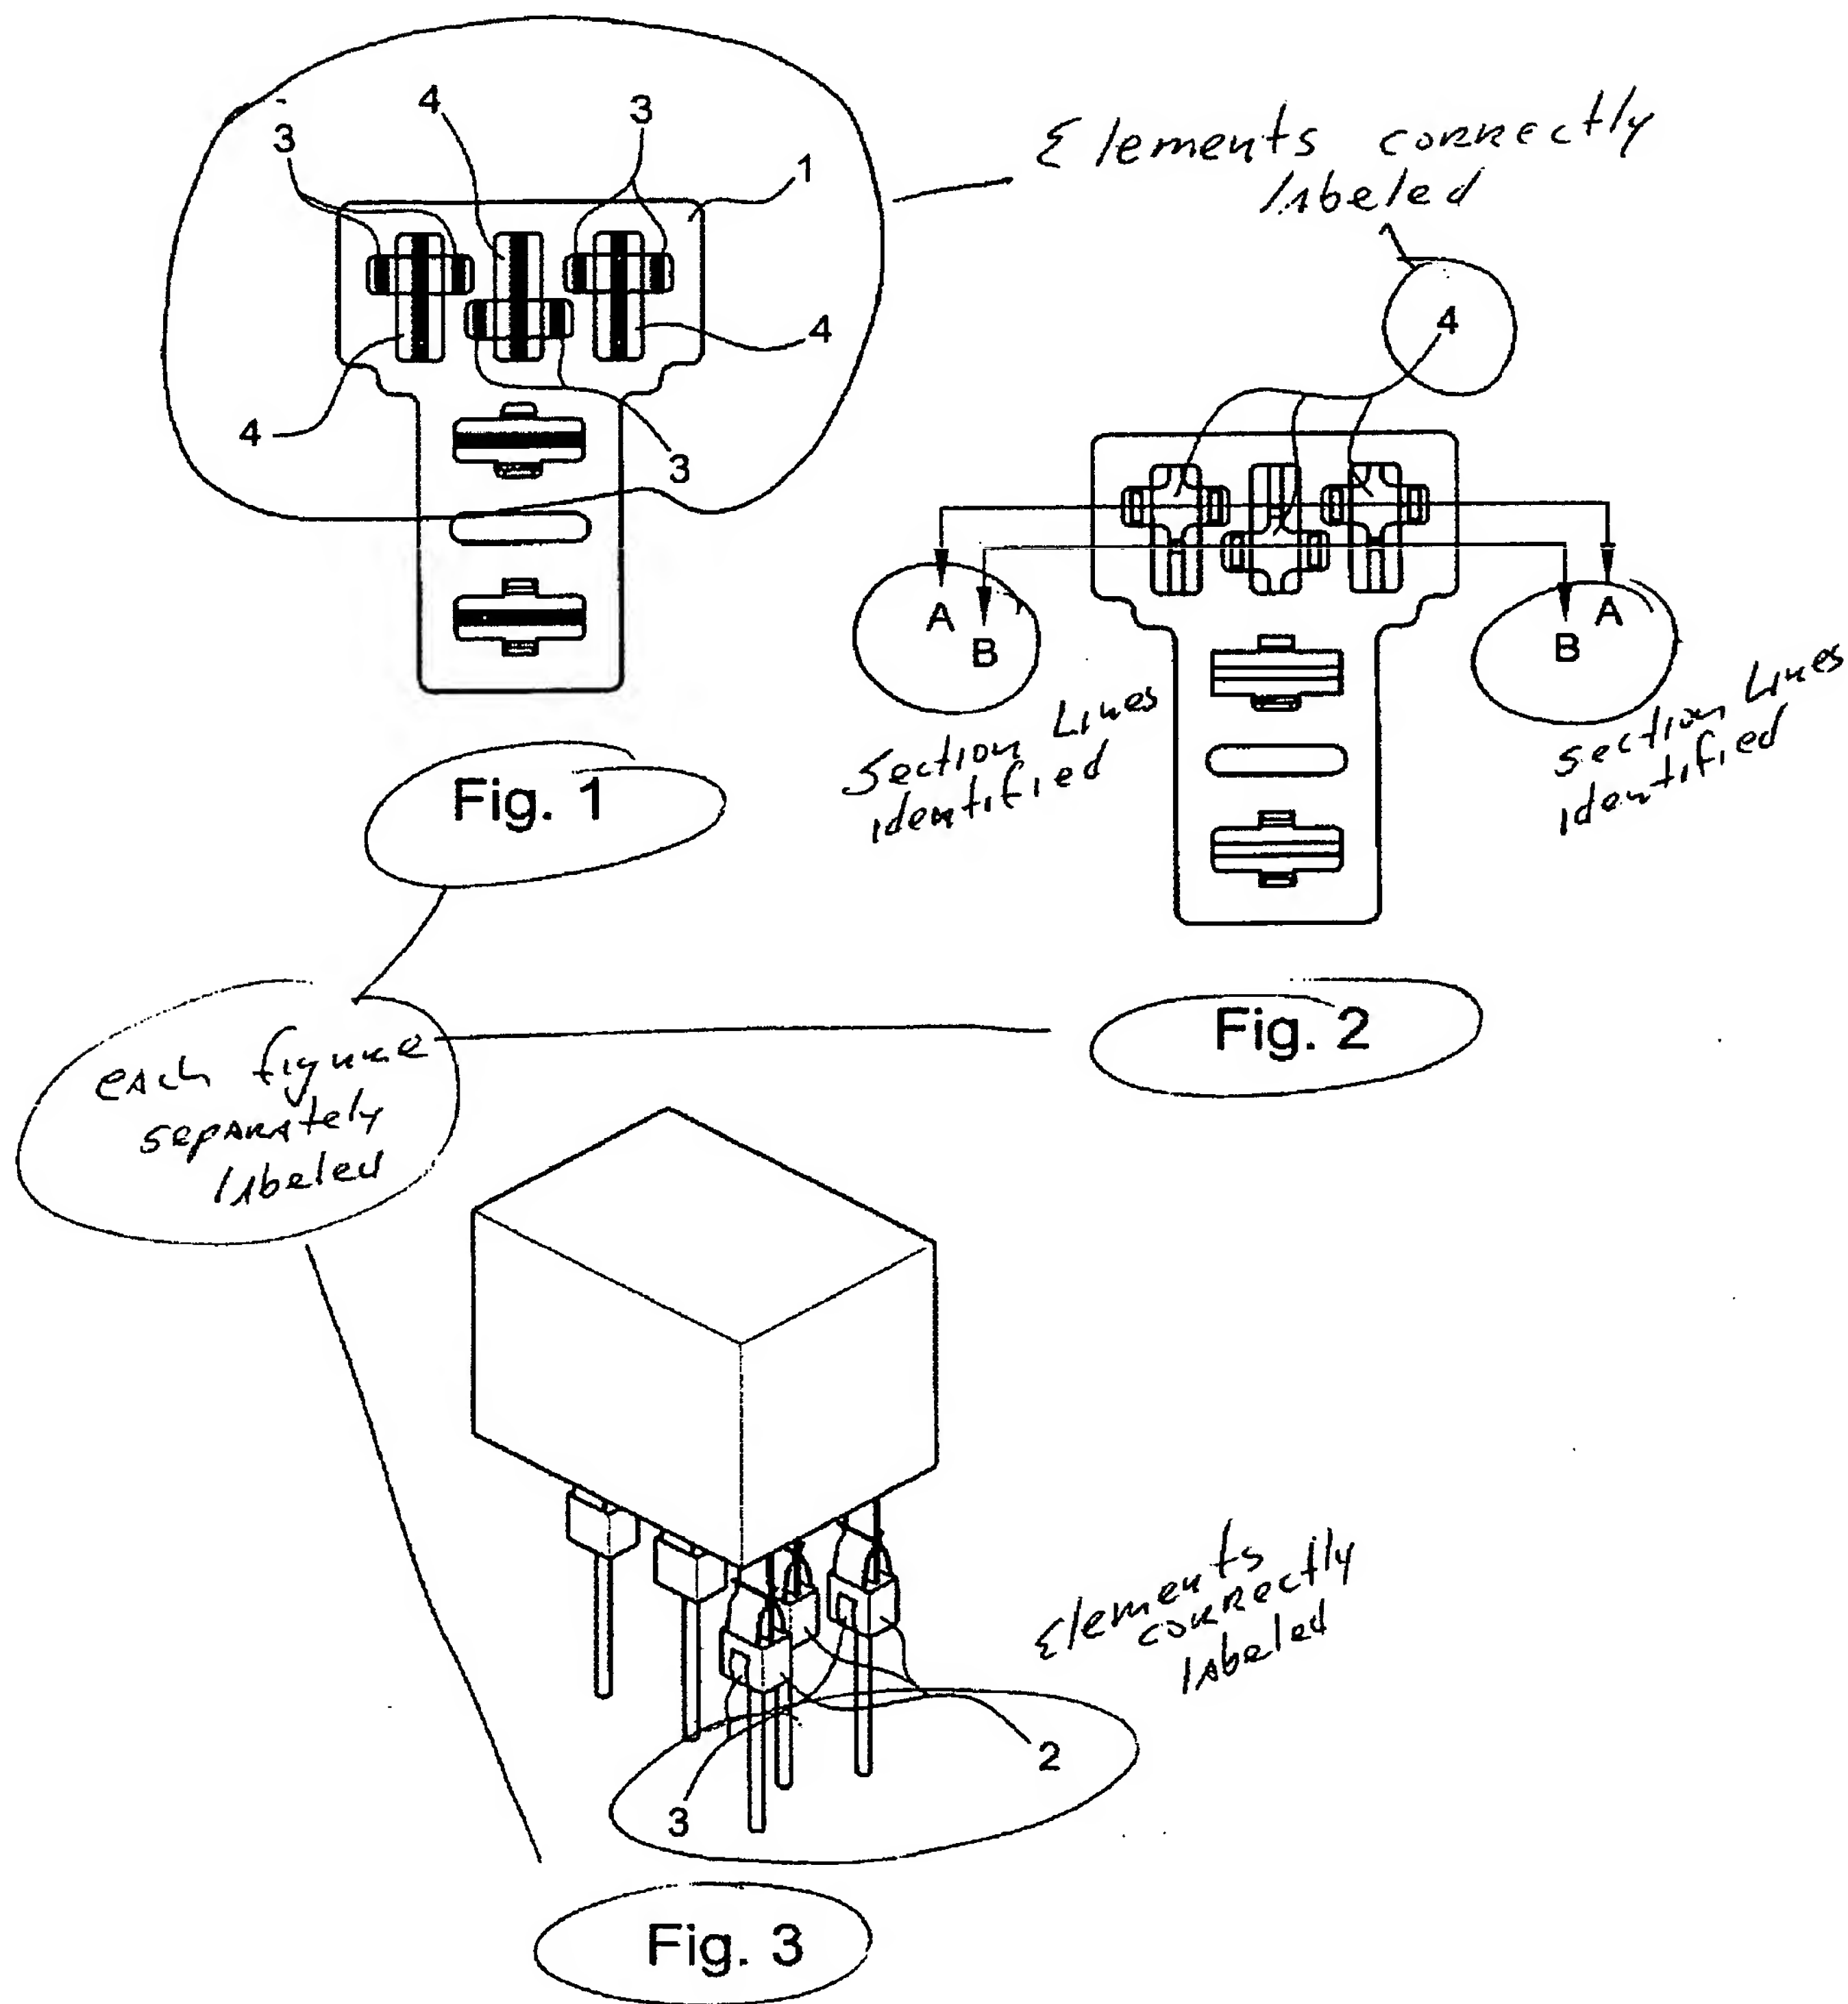 4
3
3
1
Elements correctly
labeled
4
4
4
3
A
A
B
B
Section Lines
identified
Section Lines
identified
Fig. 1
Fig. 2
each figure
separately
labeled
Elements
correctly
labeled
2
3
Fig. 3